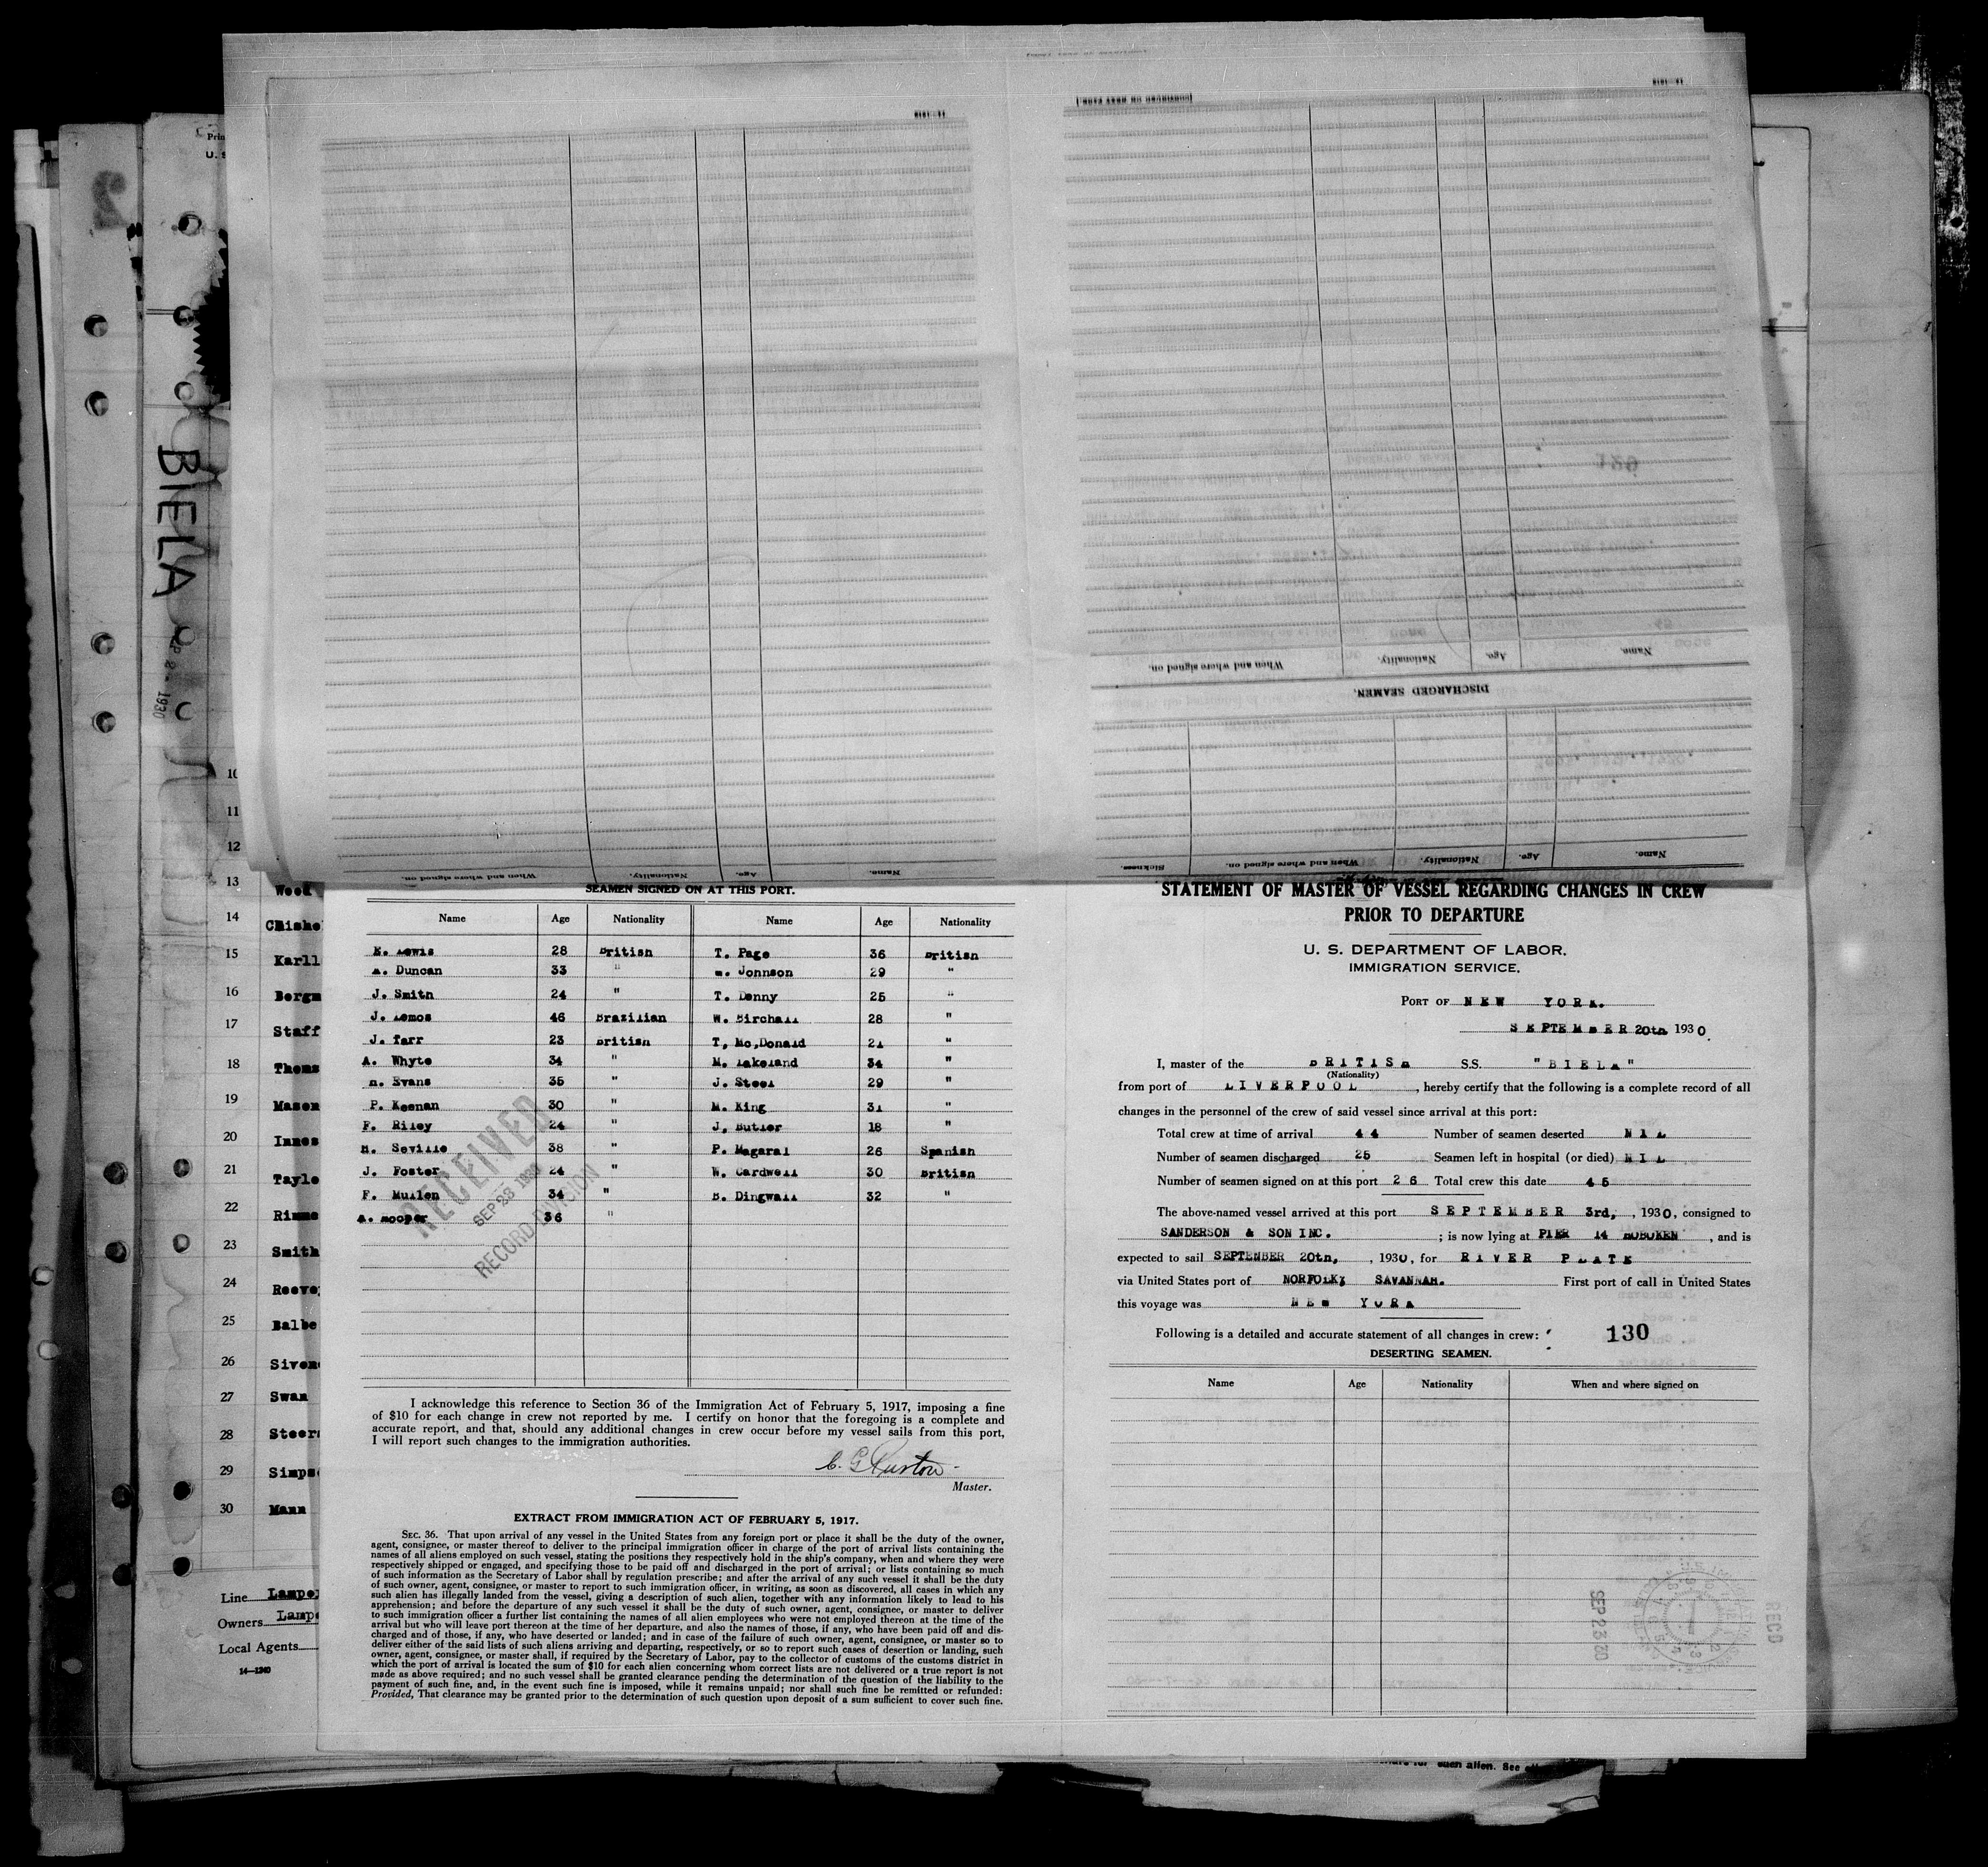 BIELA
1930
10
11
12
13
14
15
16
17
18
19
20
21
22
23
24
25
26
27
28
29
30
Line
Owners
Local Agents
14—1240
When and where signed on.
Nationality.
Age.
Name.
DISCHARGED SEAMEN.
Name.
Age.
Nationality.
When and where signed on.
Name.
Age.
Nationality.
When and where signed on.
Sickness.
SEAMEN SIGNED ON AT THIS PORT.
Name Age Nationality Name Age Nationality
E. Lewis 28 British T. Page 36 British
A. Duncan 33 " W. Johnson 29 "
J. Smith 24 " T. Denny 25 "
J. Lemos 46 Brazilian W. Birchall 28 "
J. Tarr 23 British T, Mc,Donald 21 "
A. Whyte 34 " M. Lakeland 34 "
H. Evans 35 " J. Steel 29 "
P. Keenan 30 " M. King 31 "
F. Riley 24 " J, Butler 18 "
H. Seville 38 " P. Magaral 26 Spanish
J. Foster 24 " W. Cardwell 30 British
F. Mullen 34 " B. Dingwall 32 "
A. Hooper 36 "
RECEIVED
SEP 23 1930
RECORD DIVISION
I acknowledge this reference to Section 36 of the Immigration Act of February 5, 1917, imposing a fine
of $10 for each change in crew not reported by me. I certify on honor that the foregoing is a complete and
accurate report, and that, should any additional changes in crew occur before my vessel sails from this port,
I will report such changes to the immigration authorities.
Master.
EXTRACT FROM IMMIGRATION ACT OF FEBRUARY 5, 1917.
SEC. 36. That upon arrival of any vessel in the United States from any foreign port or place it shall be the duty of the owner,
agent, consignee, or master thereof to deliver to the principal immigration officer in charge of the port of arrival lists containing the
names of all aliens employed on such vessel, stating the positions they respectively hold in the ship's company, when and where they were
respectively shipped or engaged, and specifying those to be paid off and discharged in the port of arrival; or lists containing so much
of such information as the Secretary of Labor shall by regulation prescribe; and after the arrival of any such vessel it shall be the duty
of such owner, agent, consignee, or master to report to such immigration officer, in writing, as soon as discovered, all cases in which any
such alien has illegally landed from the vessel, giving a description of such alien, together with any information likely to lead to his
apprehension; and before the departure of any such vessel it shall be the duty of such owner, agent, consignee, or master to deliver
to such immigration officer a further list containing the names of all alien employees who were not employed thereon at the time of the
arrival but who will leave port thereon at the time of her departure, and also the names of those, if any, who have been paid off and dis-
charged and of those, if any, who have deserted or landed; and in case of the failure of such owner, agent, consignee, or master so to
deliver either of the said lists of such aliens arriving and departing, respectively, or so to report such cases of desertion or landing, such
owner, agent, consignee, or master shall, if required by the Secretary of Labor, pay to the collector of customs of the customs district in
which the port of arrival is located the sum of $10 for each alien concerning whom correct lists are not delivered or a true report is not
made as above required; and no such vessel shall be granted clearance pending the determination of the question of the liability to the
payment of such fine, and, in the event such fine is imposed, while it remains unpaid; nor shall such fine be remitted or refunded:
Provided, That clearance may be granted prior to the determination of such question upon deposit of a sum sufficient to cover such fine.
STATEMENT OF MASTER OF VESSEL REGARDING CHANGES IN CREW
PRIOR TO DEPARTURE
U. S. DEPARTMENT OF LABOR.
IMMIGRATION SERVICE.
PORT OF NEW YORK.
SEPTEMBER 20th 1930.
I, master of the BRITISH S.S. "BIELA"
(Nationality)
from port of LIVERPOOL, hereby certify that the following is a complete record of all
changes in the personnel of the crew of said vessel since arrival at this port:
Total crew at time of arrival 44 Number of seamen deserted NIL
Number of seamen discharged 25 Seamen left in hospital (or died) NIL
Number of seamen signed on at this port 26 Total crew this date 45
The above-named vessel arrived at this port SEPTEMBER 3rd, , 1930, consigned to
SANDERSON & SON INC. ; is now lying at PIER 14 HOBOKEN , and is
expected to sail SEPTEMBER 20th, , 1930, for RIVER PLATE
via United States port of NORFOLK, SAVANNAH. First port of call in United States
this voyage was NEW YORK
Following is a detailed and accurate statement of all changes in crew:
130
DESERTING SEAMEN.
Name Age Nationality When and where signed on
SEP 23 30
REC'D